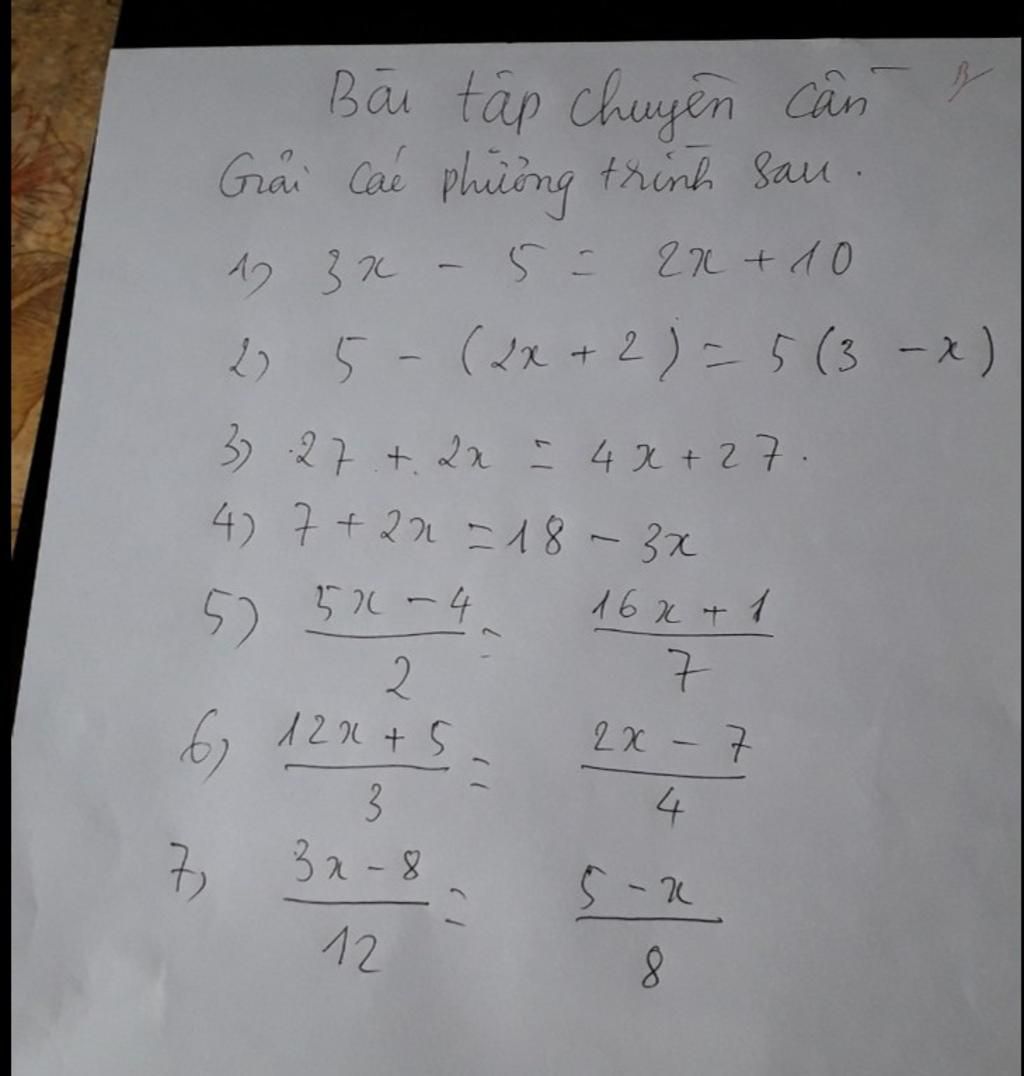 Bài tập chuyên cần
Giải các phương trình sau.
1) 3x - 5 = 2x + 10
2) 5 - (2x + 2) = 5(3 - x)
3) 27 + 2x = 4x + 27.
4) 7 + 2x = 18 - 3x
5) (5x - 4)/2 = (16x + 1)/7
6) (12x + 5)/3 = (2x - 7)/4
7) (3x - 8)/12 = (5 - x)/8